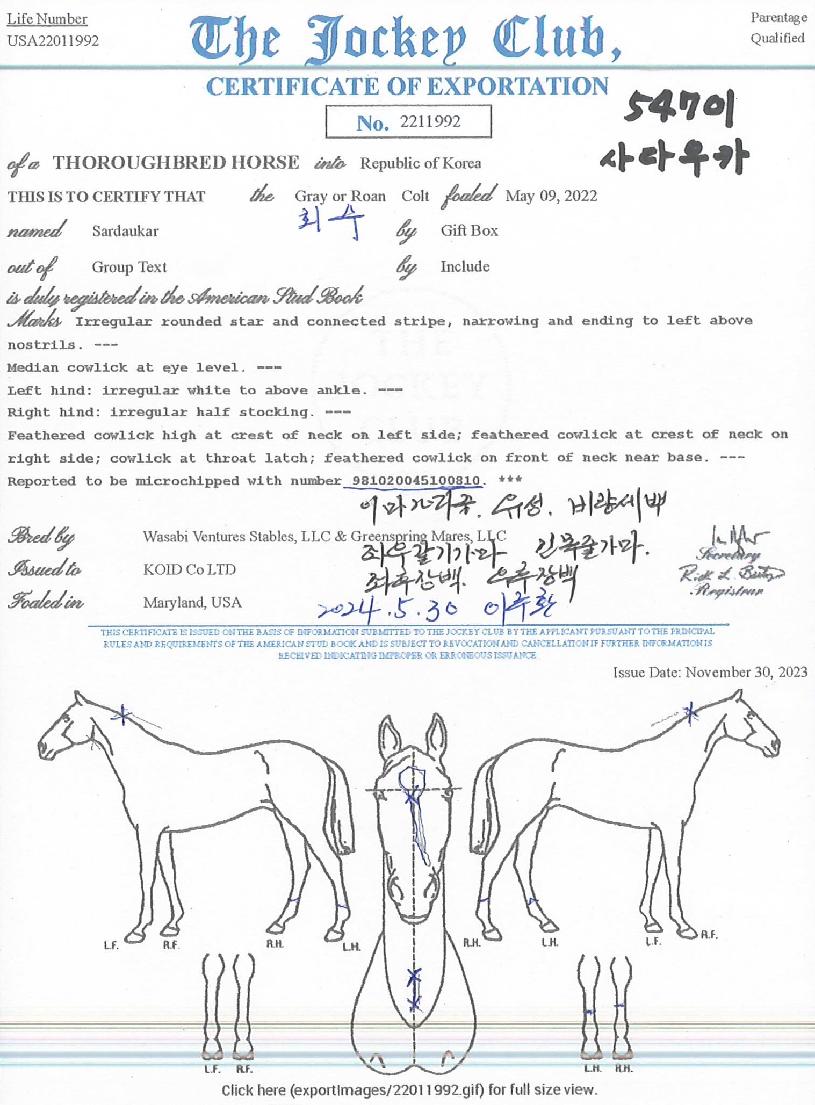 Life Number
USA22011992
The Jockey Club,
Parentage
Qualified
CERTIFICATE OF EXPORTATION
No. 2211992
54701
사다우카
of a THOROUGHBRED HORSE into Republic of Korea
THIS IS TO CERTIFY THAT the Gray or Roan Colt foaled May 09, 2022
회 수
named Sardaukar by Gift Box
out of Group Text by Include
is duly registered in the American Stud Book
Marks Irregular rounded star and connected stripe, narrowing and ending to left above
nostrils. ---
Median cowlick at eye level. ---
Left hind: irregular white to above ankle. ---
Right hind: irregular half stocking. ---
Feathered cowlick high at crest of neck on left side; feathered cowlick at crest of neck on
right side; cowlick at throat latch; feathered cowlick on front of neck near base. ---
Reported to be microchipped with number 981020045100810. ***
유성. 비량세백
Bred by Wasabi Ventures Stables, LLC & Greenspring Mares, LLC
좌우갈기가마 인후줄가마.
Secretary
Issued to KOID Co LTD
좌후장백. 우후장백
Registrar
Foaled in Maryland, USA
2024.5.30
THIS CERTIFICATE IS ISSUED ON THE BASIS OF INFORMATION SUBMITTED TO THE JOCKEY CLUB BY THE APPLICANT PURSUANT TO THE PRINCIPAL
RULES AND REQUIREMENTS OF THE AMERICAN STUD BOOK AND IS SUBJECT TO REVOCATION AND CANCELLATION IF FURTHER INFORMATION IS
RECEIVED INDICATING IMPROPER OR ERRONEOUS ISSUANCE.
Issue Date: November 30, 2023
L.F. R.F. R.H. L.H. R.H. L.H. L.F. R.F.
L.F. R.F. L.H. R.H.
Click here (exportImages/22011992.gif) for full size view.